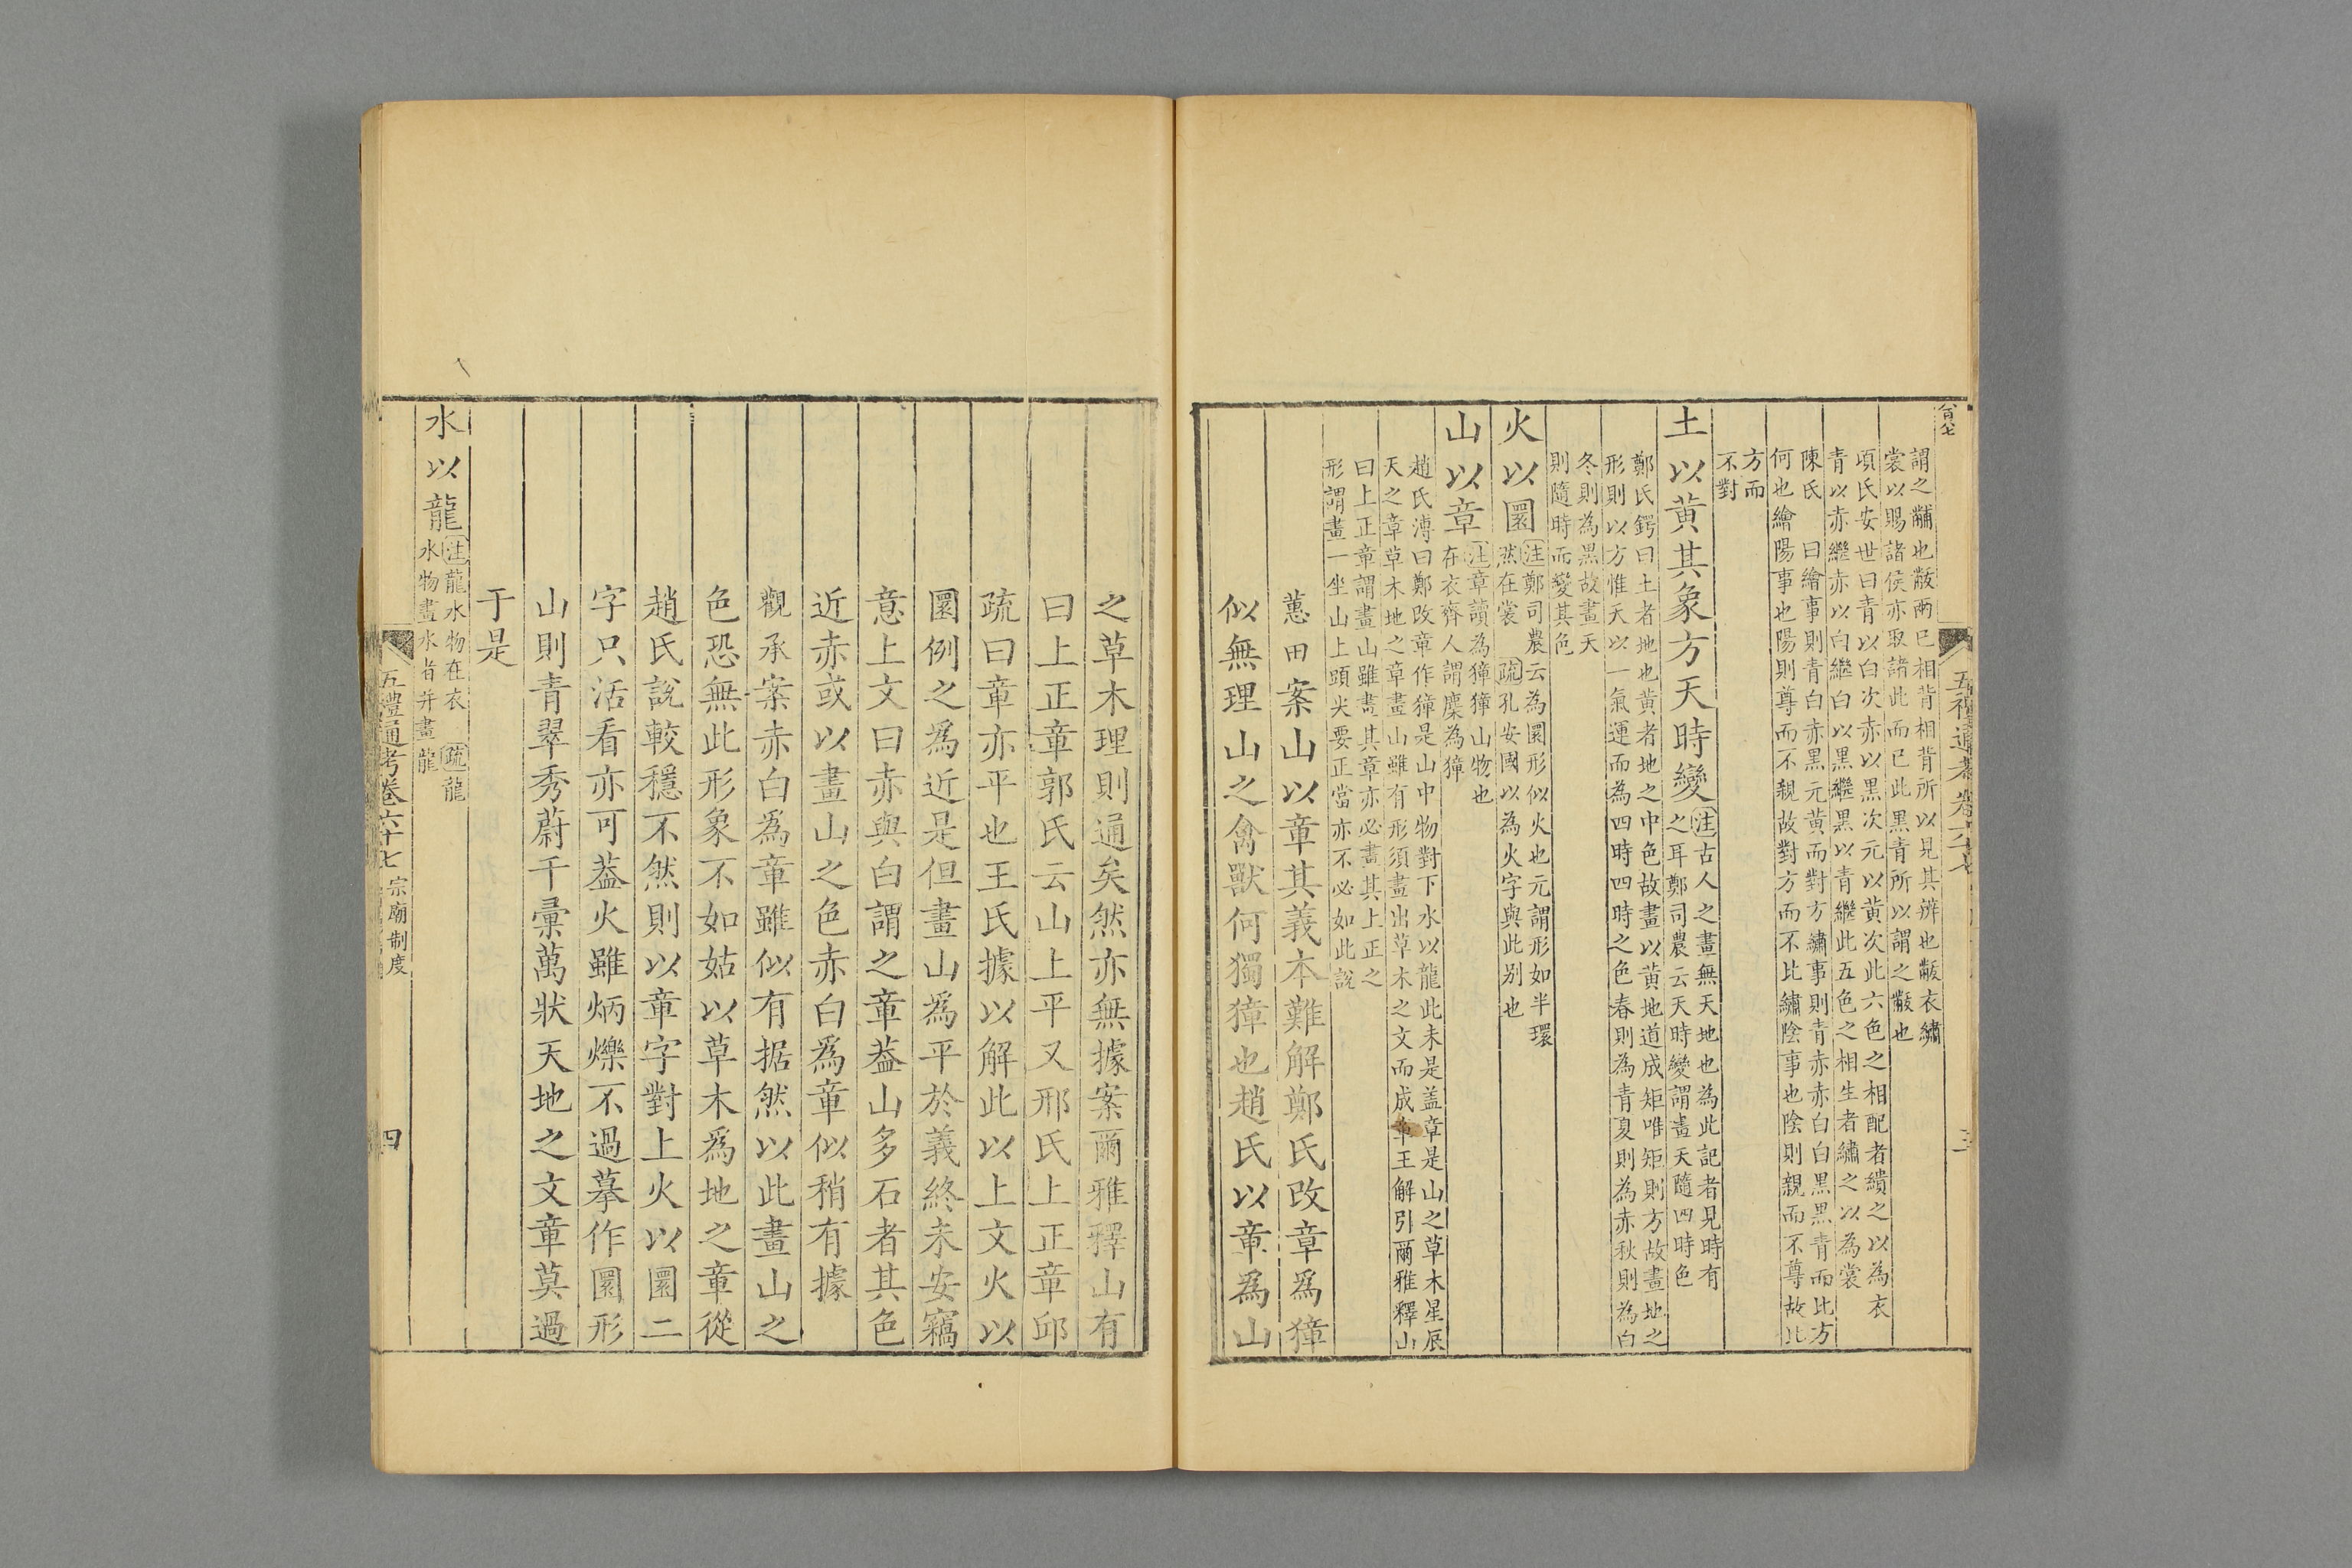 五禮通考卷六十七
三
謂之黼也黻兩已相背相背所以見其辨也黻衣繡
裳以賜諸侯亦取諸此而已此黑青所以謂之黻也
項氏安世曰青以白次赤以黑次元以黃次此六色之相配者繢之以為衣
青以赤繼赤以白繼白以黑繼黑以青繼此五色之相生者繡之以為裳
陳氏　曰繪事則青白赤黑元黃而對方繡事則青赤赤白白黑黑青而比方
何也繪陽事也陽則尊而不親故對方而不比繡陰事也陰則親而不尊故比
方而
不對
土以黃其象方天時變
注古人之畫無天地也為此記者見時有
之耳鄭司農云天時變謂畫天隨四時色
鄭氏鍔曰土者地也黃者地之中色故畫以黃地道成矩唯矩則方故畫地之
形則以方惟天以一氣運而為四時四時之色春則為青夏則為赤秋則為白
冬則為黑故畫天
則隨時而變其色
火以圜
注鄭司農云為圜形似火也元謂形如半環
然在裳　疏孔安國以為火字與此别也
山以章
注章讀為獐獐山物也
在衣齊人謂麇為獐
趙氏溥曰鄭改章作獐是山中物對下水以龍此未是盖章是山之草木星辰
天之章草木地之章畫山雖有形須畫出草木之文而成章王解引爾雅釋山
曰上正章謂畫山雖畫其章亦必畫其上正之
形謂畫一坐山上頭尖要正當亦不必如此說
蕙田案山以章其義本難解鄭氏改章爲獐
似無理山之禽獸何獨獐也趙氏以章爲山
之草木理則通矣然亦無據案爾雅釋山有
曰上正章郭氏云山上平又邢氏上正章邱
疏曰章亦平也王氏據以解此以上文火以
圜例之爲近是但畫山爲平於義終未安竊
意上文曰赤與白謂之章葢山多石者其色
近赤或以畫山之色赤白爲章似稍有據
觀承案赤白爲章雖似有据然以此畫山之
色恐無此形象不如姑以草木爲地之章從
趙氏說較穩不然則以章字對上火以圜二
字只活看亦可葢火雖炳爍不過摹作圜形
山則青翠秀蔚千彙萬狀天地之文章莫過
于是
水以龍
注龍水物在衣　疏龍
水物畫水者并畫龍
五禮通考卷六十七　宗廟制度
四